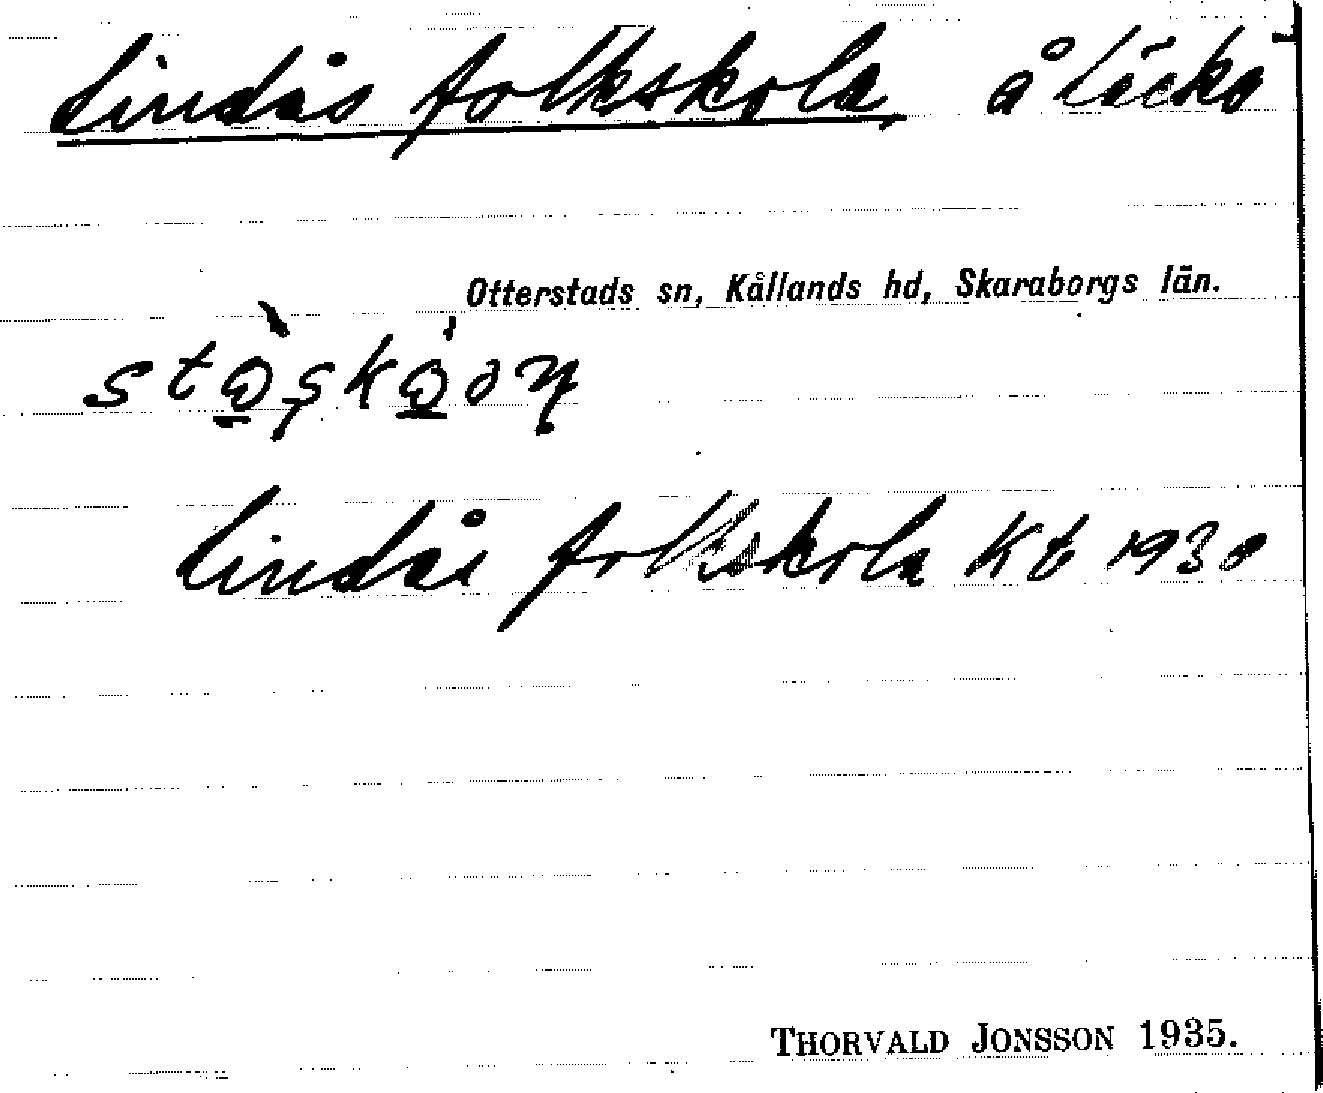 Lindås folkskola, å Läckö
Otterstads sn, Kållands hd, Skaraborgs län.
Lindås folkskola Kb 1930
THORVALD JONSSON 1935.